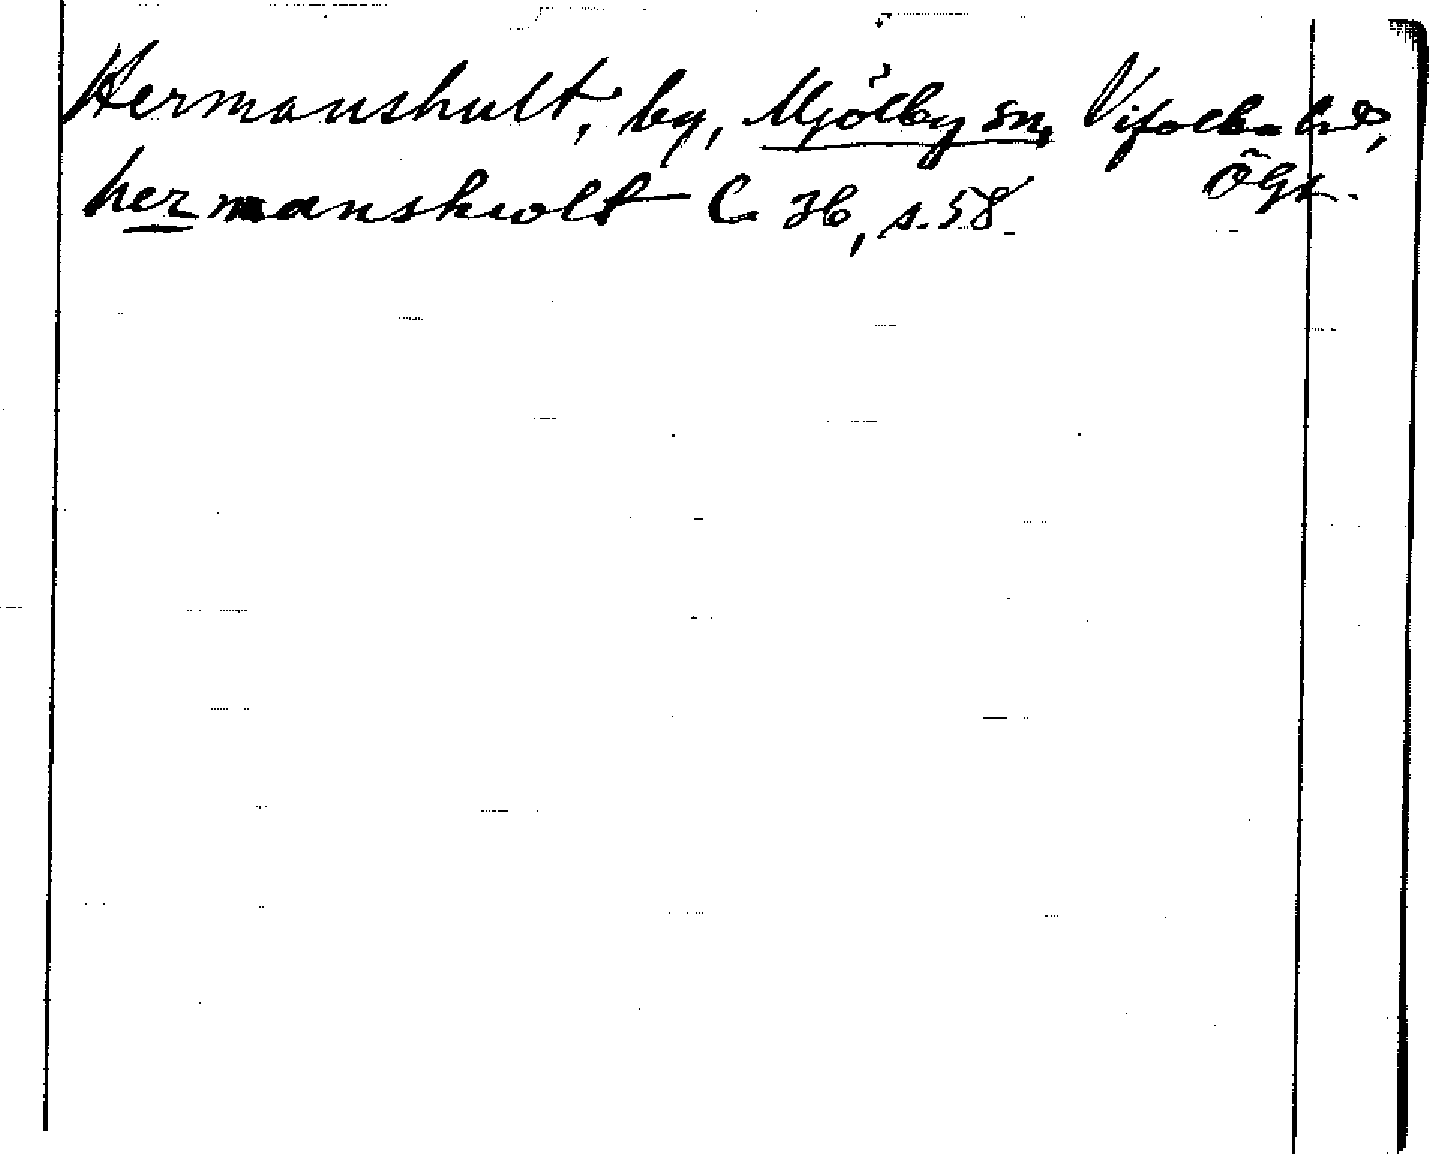 Hermanshult, by, Mjölby sn, Vifolka hd,
hermansholt C 36, s. 58. Ögl.